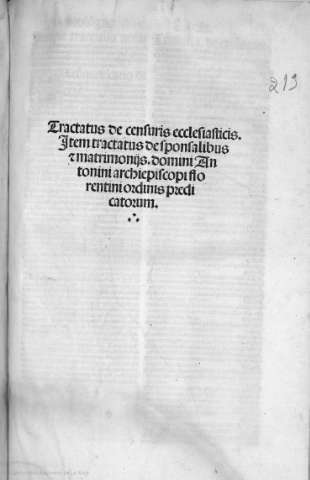 213
Tractatus de censuris ecclesiasticis.
Item tractatus de sponsalibus
⁊ matrimonijs. domini An
tonini archiepiscopi flo
rentini ordinis predi
catorum.